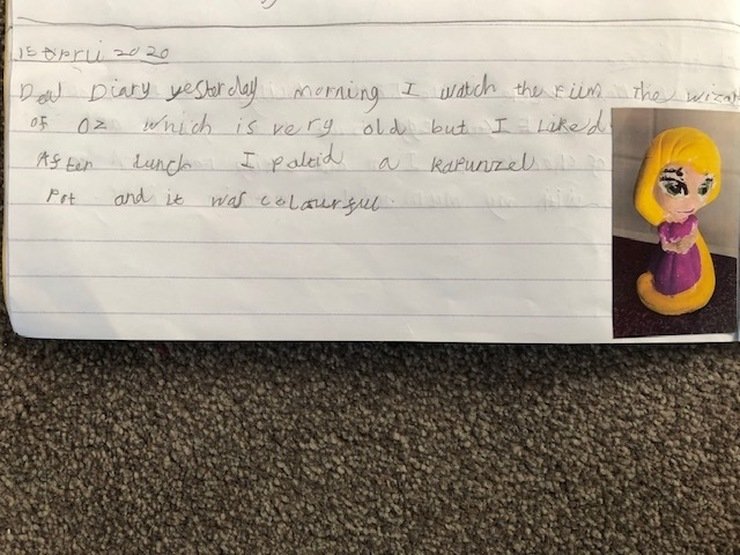 15 April 2020
Dear Diary yesterday morning I watch the film The wizar
of Oz which is very old but I Liked
After Lunch I paltid a Rapunzel
Pot and it was colourful.